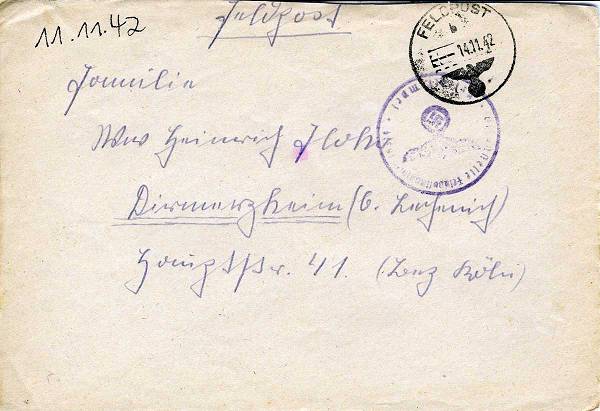 11.11.42
Feldpost
FELDPOST
b
14.11.42
Familie
Wwe Heinrich
Dirmerzheim (b. Lechenich)
Hauptstr. 41. (Bez Köln)